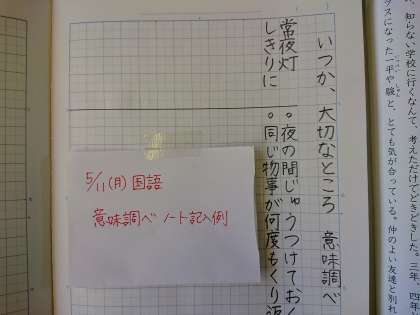 知らない学校に行くなんて、考えただけでどきどきした。三年、四年
クスになった一平や駿と、とても気が合っている。仲のよい友達と別れ
いつか、大切なところ 意味調べ
常夜灯
。夜の間じゅうつけておく
しきりに
。同じ物事が何度もくり返
5/11(月)国語
意味調べ ノート記入例